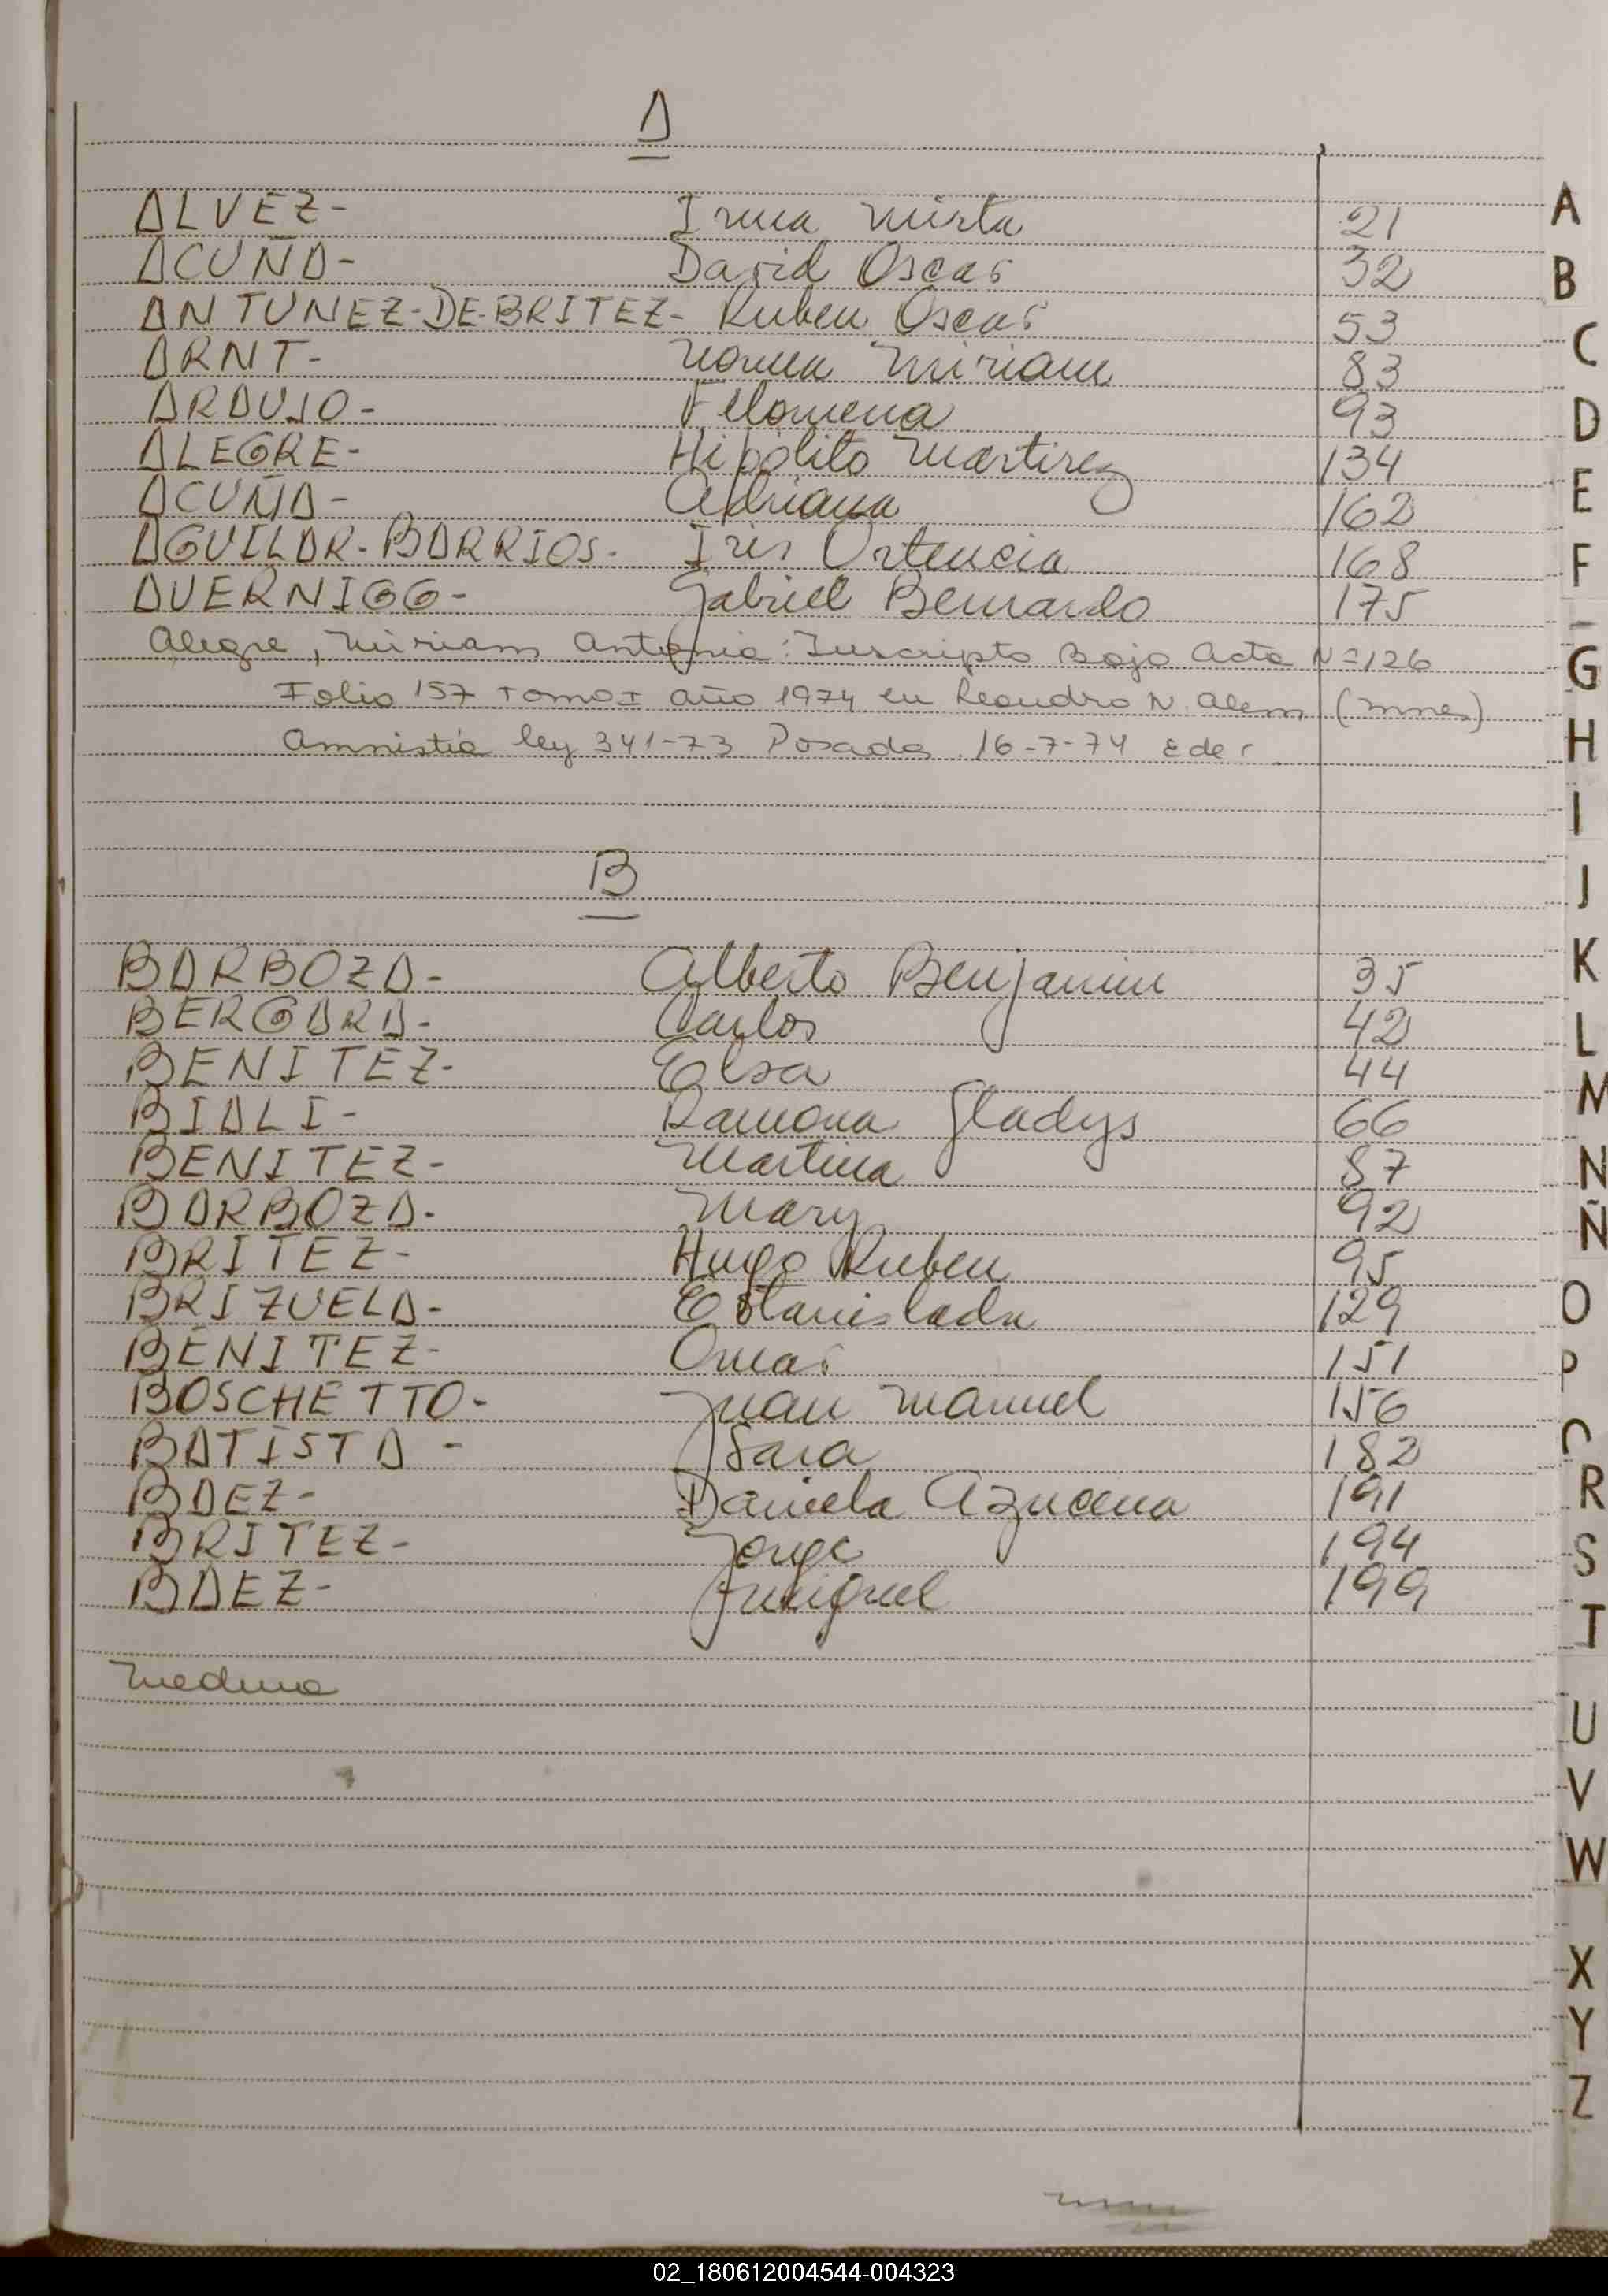 A
ALVEZ- Irma Mirta 21
ACUÑA- David Oscar 32
ANTUNEZ-DE-BRITEZ- Ruben Oscar 53
ARNT- Norma Miriam 83
ARAUJO- Filomena 93
ALEGRE- Hipólito Martirez 134
ACUÑA- Adriana 162
AGUILAR-BARRIOS- Iris Ortencia 168
AVERNIGG- Gabriel Bernardo 175
Alegre, Miriam Antonia: Inscripto Bajo Acta Nº 126
Folio 157 Tomo I año 1974 en Leandro N. Alem (Mnes)
Amnistía ley 341-73 Posadas 16-7-74
B
BARBOZA- Alberto Benjamin 35
BERGARA- Carlos 42
BENITEZ- Elsa 44
BIALI- Ramona Gladys 66
BENITEZ- Martina 87
BARBOZA- Mary 92
BRITEZ- Hugo Ruben 95
BRIZUELA- Estanislada 129
BENITEZ- Omar 151
BOSCHETTO- Juan Manuel 156
BATISTA - Sara 182
BAEZ- Daniela Azucena 191
BRITEZ- Jorge 194
BAEZ- 199
Medina
A
B
C
D
E
F
G
H
I
J
K
L
M
N
Ñ
O
P
R
S
T
U
V
W
X
Y
Z
02_180612004544-004323